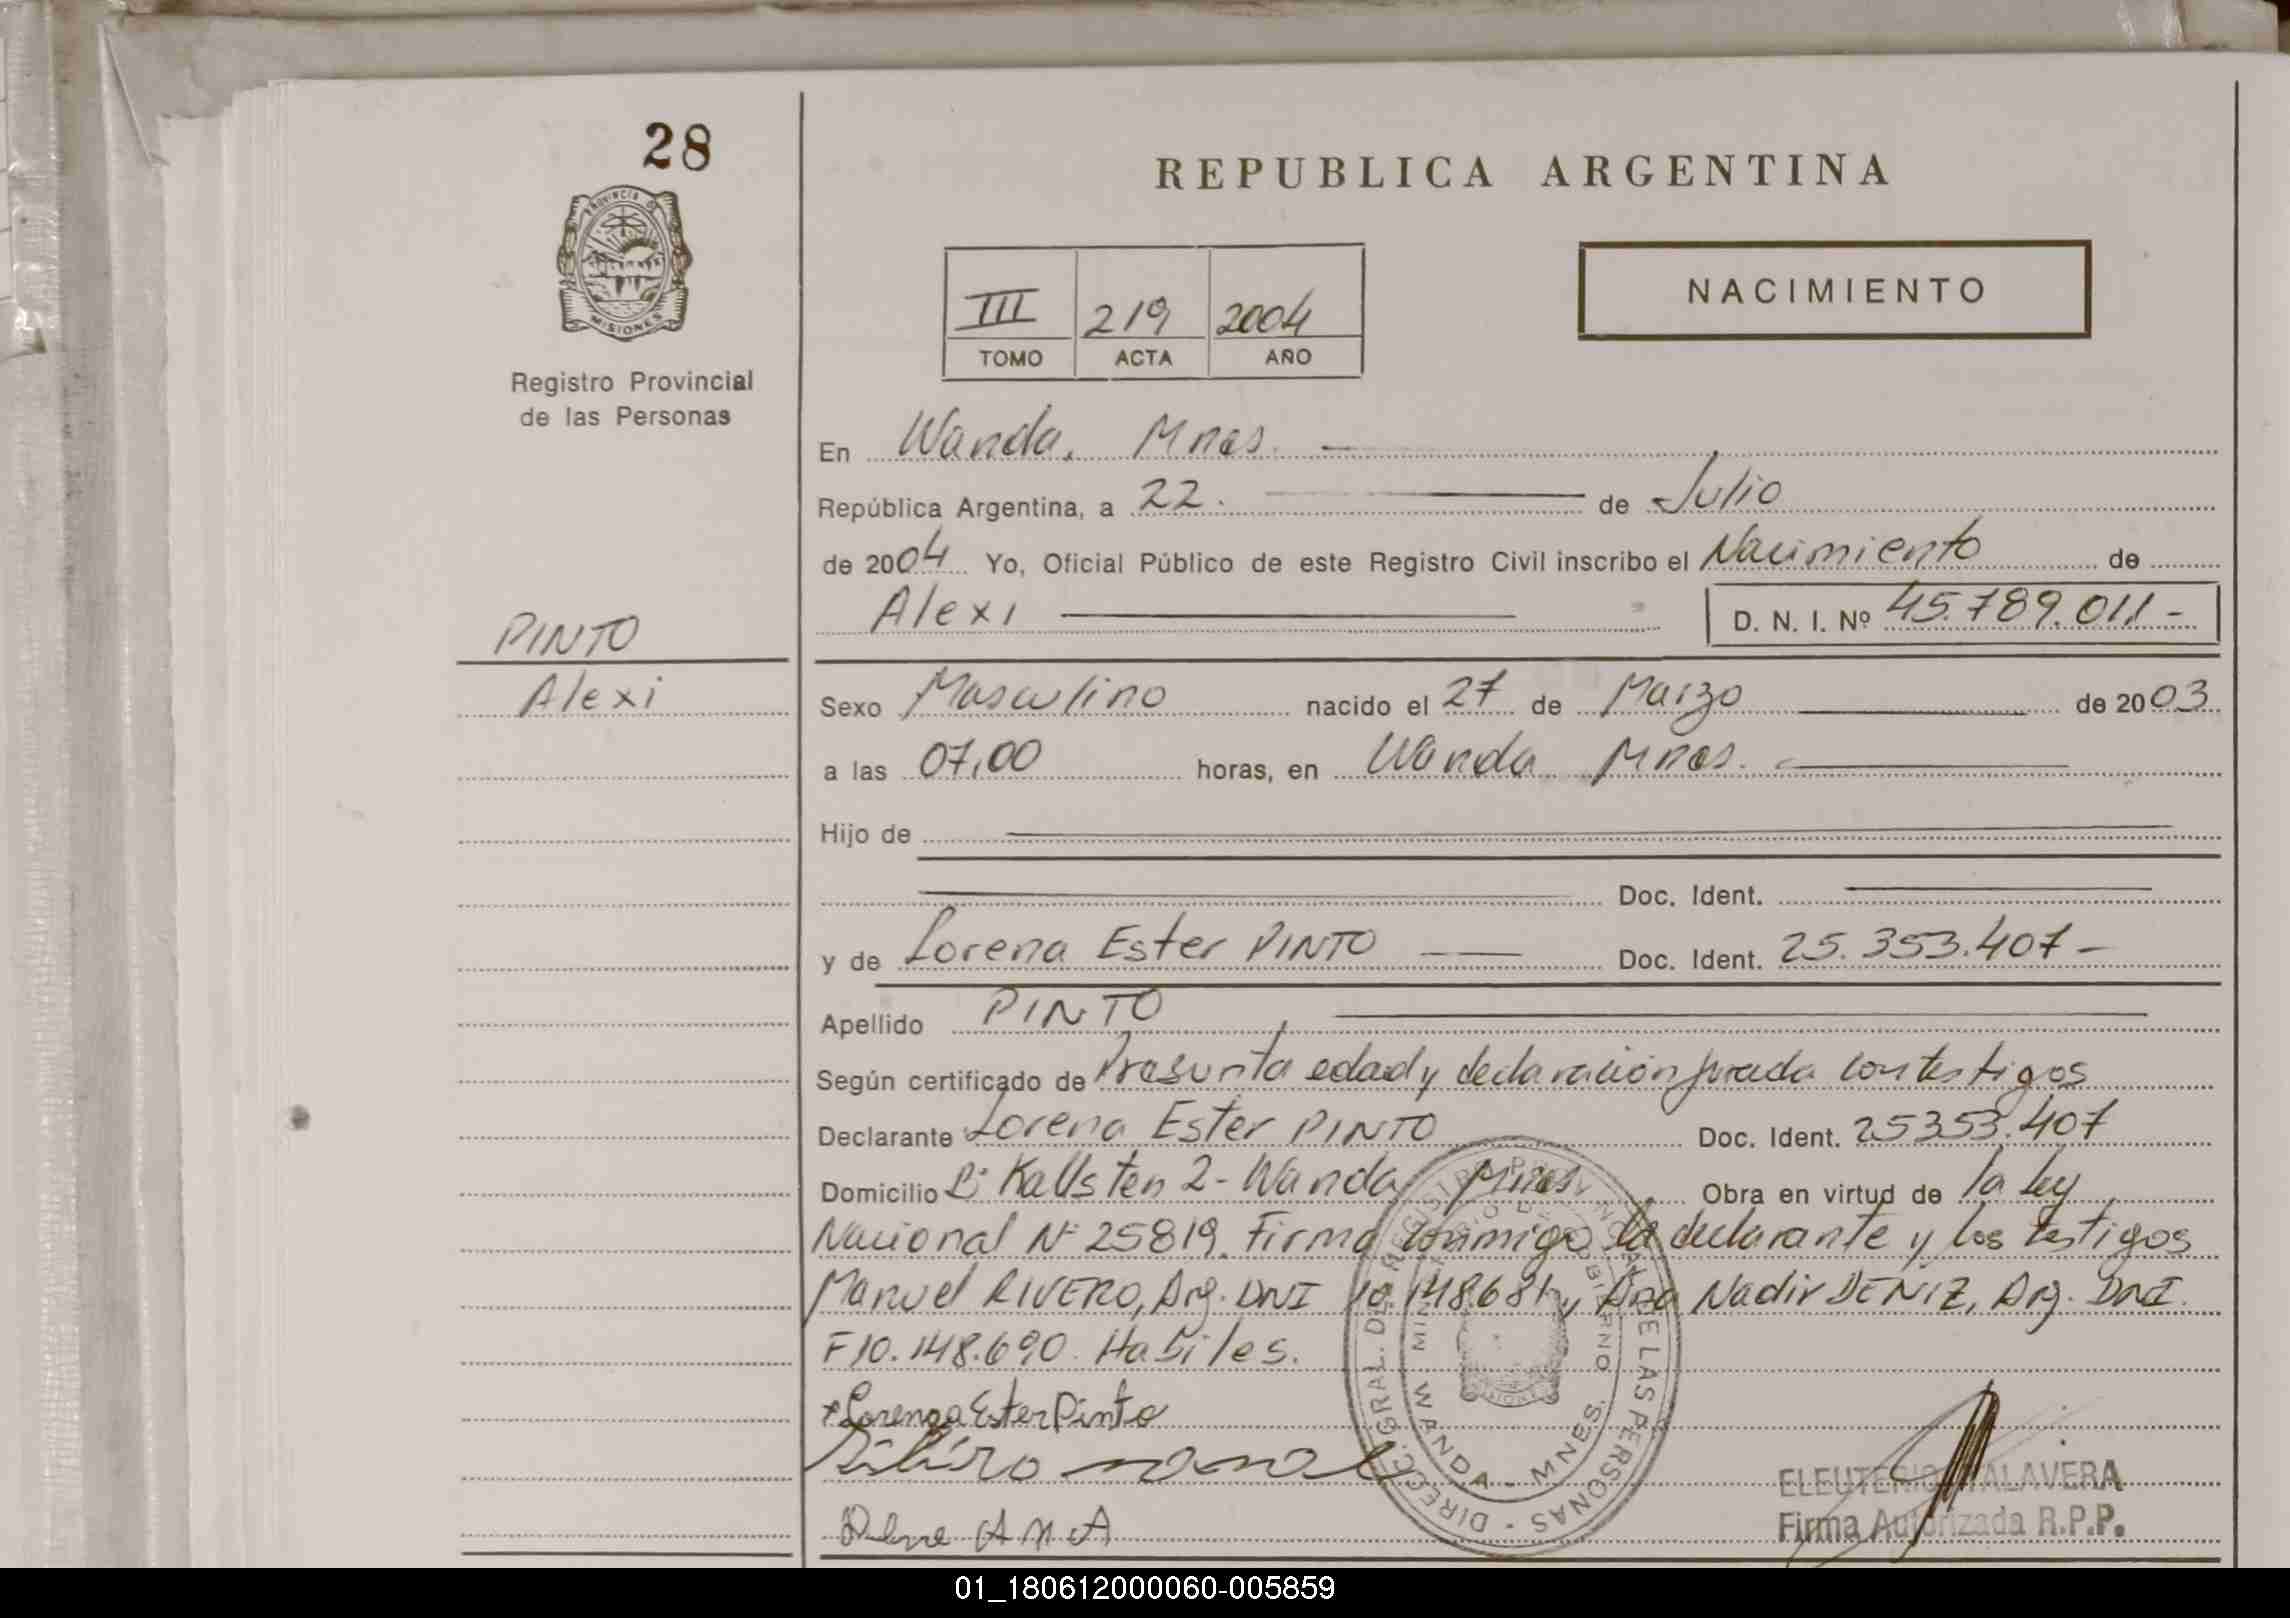 28
PROVINCIA DE
MISIONES
Registro Provincial
de las Personas
REPUBLICA ARGENTINA
III 219 2004
TOMO ACTA AÑO
NACIMIENTO
En Wanda, Mnes.
República Argentina, a 22. de Julio
de 2004 Yo, Oficial Público de este Registro Civil inscribo el Nacimiento de
Alexi D. N. I. Nº 45.789.011-
PINTO
Alexi
Sexo Masculino nacido el 27 de Marzo de 2003
a las 07,00 horas, en Wanda Mnes.
Hijo de
Doc. Ident.
y de Lorena Ester PINTO Doc. Ident. 25.353.407-
Apellido PINTO
Según certificado de Presunta edad y declaración jurada con testigos
Declarante Lorena Ester PINTO Doc. Ident. 25353.407
Domicilio Bº Kallsten 2 - Wanda Mnes. Obra en virtud de la ley
Nacional Nº 25819. Firma conmigo la declarante y los testigos
Manuel RIVERO, Arg. DNI 10.148.681 y Ana Nadir DENIZ, Arg. DNI.
F10.148.690. Habiles.
Lorenza Ester Pinto
ANA
DIRECC. GRAL. DE REGISTRO PROVINCIAL DE LAS PERSONAS
MINISTERIO DE GOBIERNO
WANDA - MNES.
ELEUTERIO TALAVERA
Firma Autorizada R.P.P.
01_180612000060-005859